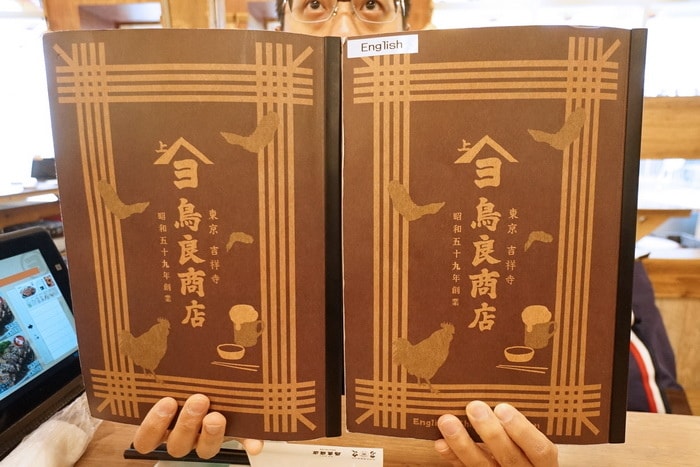 上
ヨ
鳥良商店
東京 吉祥寺
昭和五十九年創業
English
上
ヨ
鳥良商店
東京 吉祥寺
昭和五十九年創業